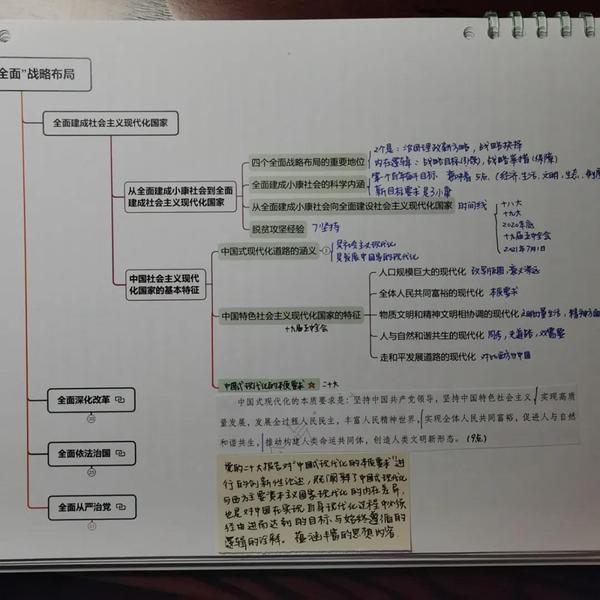 全面”战略布局
全面建成社会主义现代化国家
从全面建成小康社会到全面
建成社会主义现代化国家
四个全面战略布局的重要地位
2个是：治国理政新方略，战略抉择
内在逻辑：战略目标(引领)，战略举措(保障)
全面建成小康社会的科学内涵
第一个百年奋斗目标
(经济,生活,文明,生态,制度
新目标要求是
从全面建成小康社会向全面建设社会主义现代化国家
时间线
十八大
十九大
2020年底
十九届五中全会
2021年7月1
脱贫攻坚经验
7坚持
中国社会主义现代
化国家的基本特征
中国式现代化道路的涵义
是社会主义现代化
是发展中国家的现代化
中国特色社会主义现代化国家的特征
十九届五中全会
人口规模巨大的现代化
改写版图,意义深远
全体人民共同富裕的现代化
本质要求
物质文明和精神文明相协调的现代化
人与自然和谐共生的现代化
走和平发展道路的现代化
对比西方与中国
中国式现代化的本质要求
二十大
中国式现代化的本质要求是：坚持中国共产党领导，坚持中国特色社会主义，实现高质
量发展，发展全过程人民民主，丰富人民精神世界，实现全体人民共同富裕，促进人与自然
和谐共生，推动构建人类命运共同体，创造人类文明新形态。(9点)
党的二十大报告对“中国式现代化的本质要求”进
行的创新性论述，既阐释了中国式现代化
与西方主要资本主义国家现代化的内在差异，
也是对中国在实现自身现代化过程中必须
经由进而达到的目标与始终遵循的
逻辑的诠释。蕴涵丰富的思想内容
全面深化改革
全面依法治国
全面从严治党